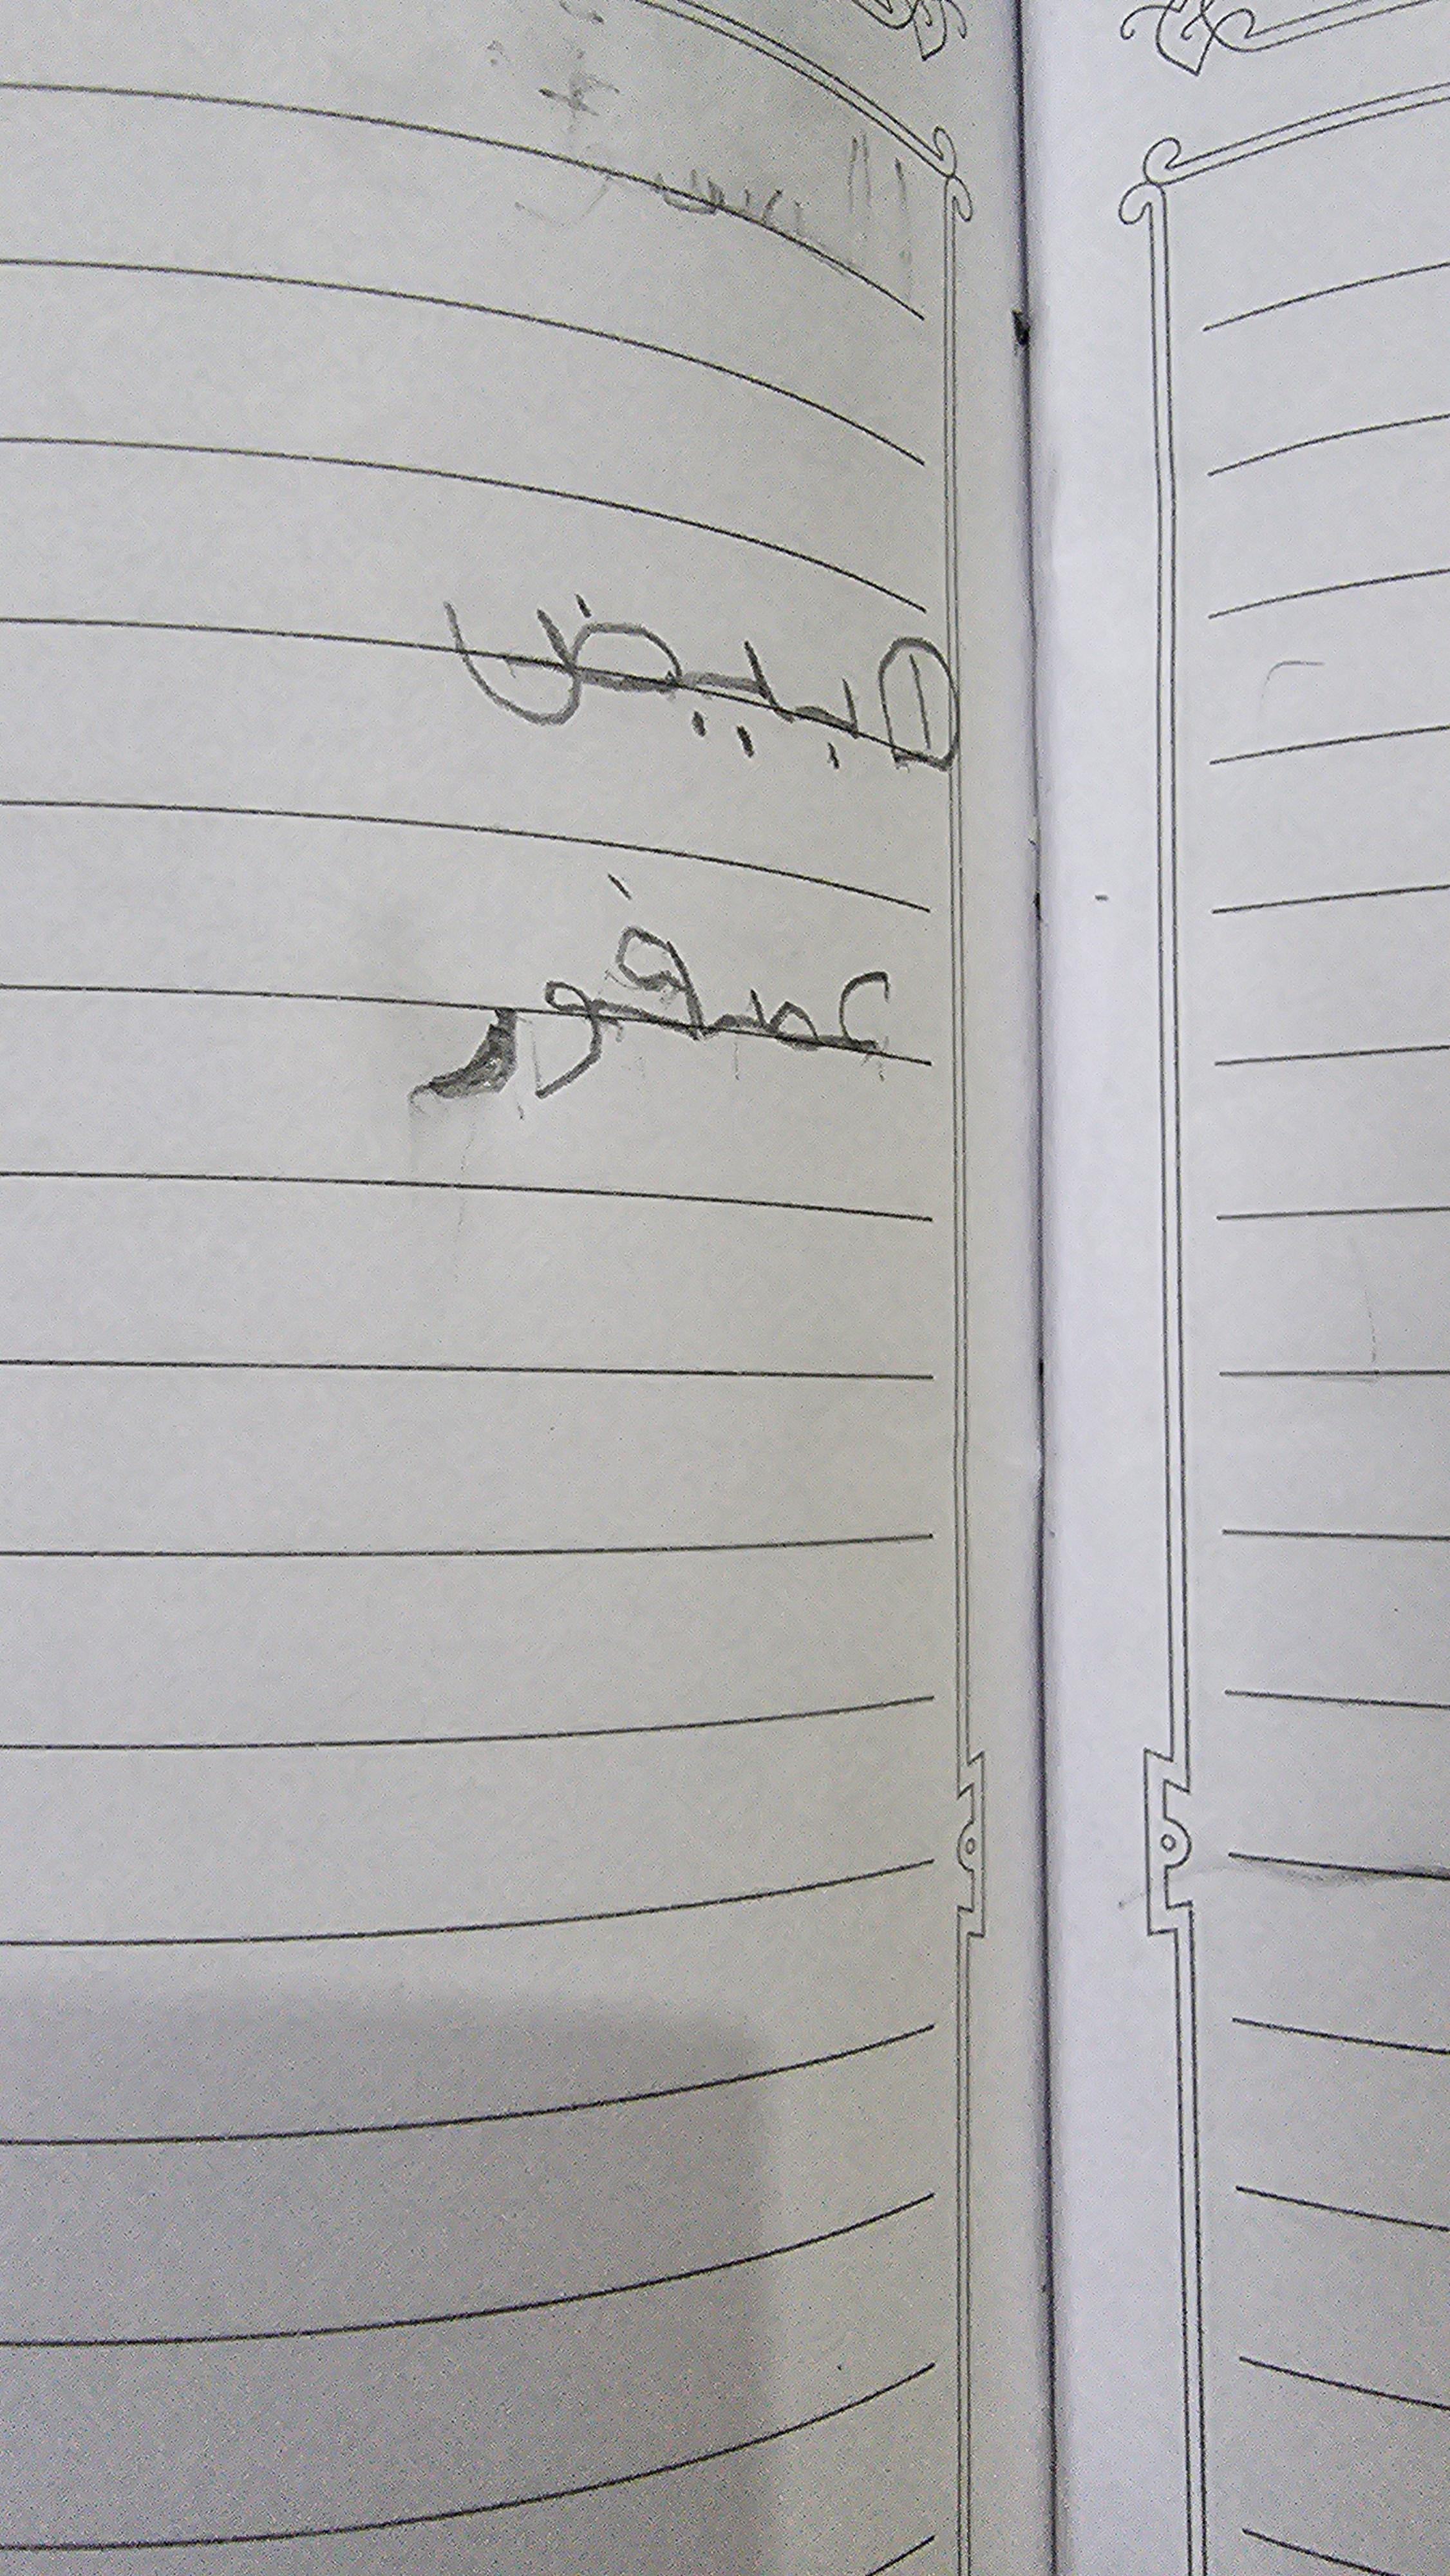 ابيض
عصفور